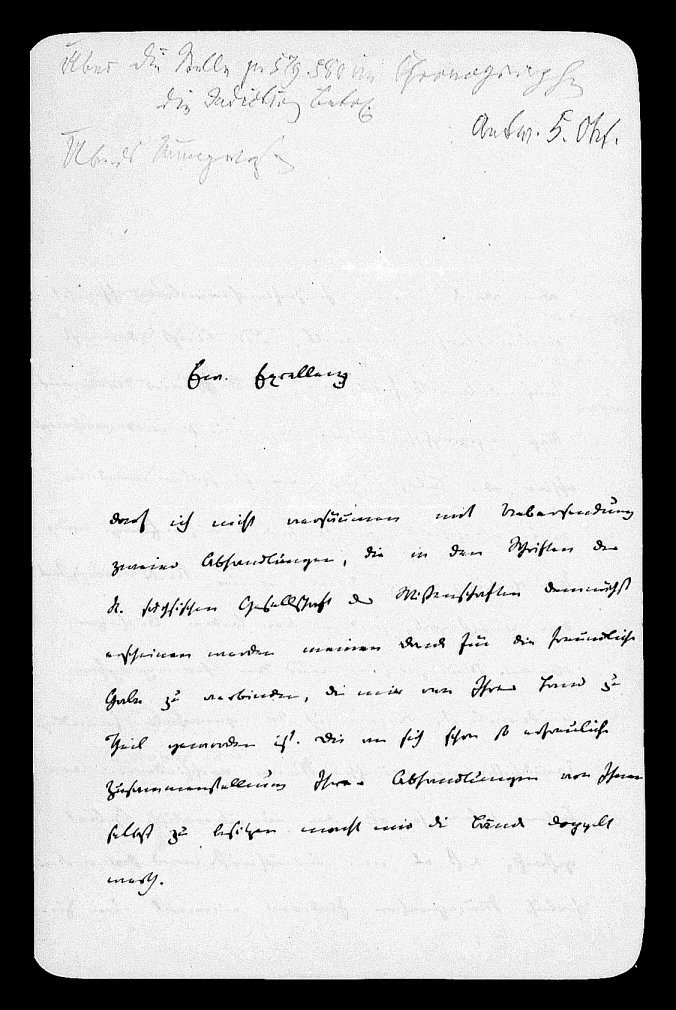 Über die Stelle p. 579. 580 im Chronographen
die Indiction betr.
Antw. 5. Okt.
Ew. Excellenz
darf ich nicht versäumen mit Uebersendung
zweier Abhandlungen, die in den Schriften der
K. sächsischen Gesellschaft der Wissenschaften demnächst
erscheinen werden meinen Dank für die freundliche
Gabe zu verbinden, die mir von Ihrer Hand zu
Theil geworden ist. Die an sich schon so erfreuliche
Zusammenstellung Ihrer Abhandlungen von Ihnen
selbst zu besitzen macht mir die Bände doppelt
werth.